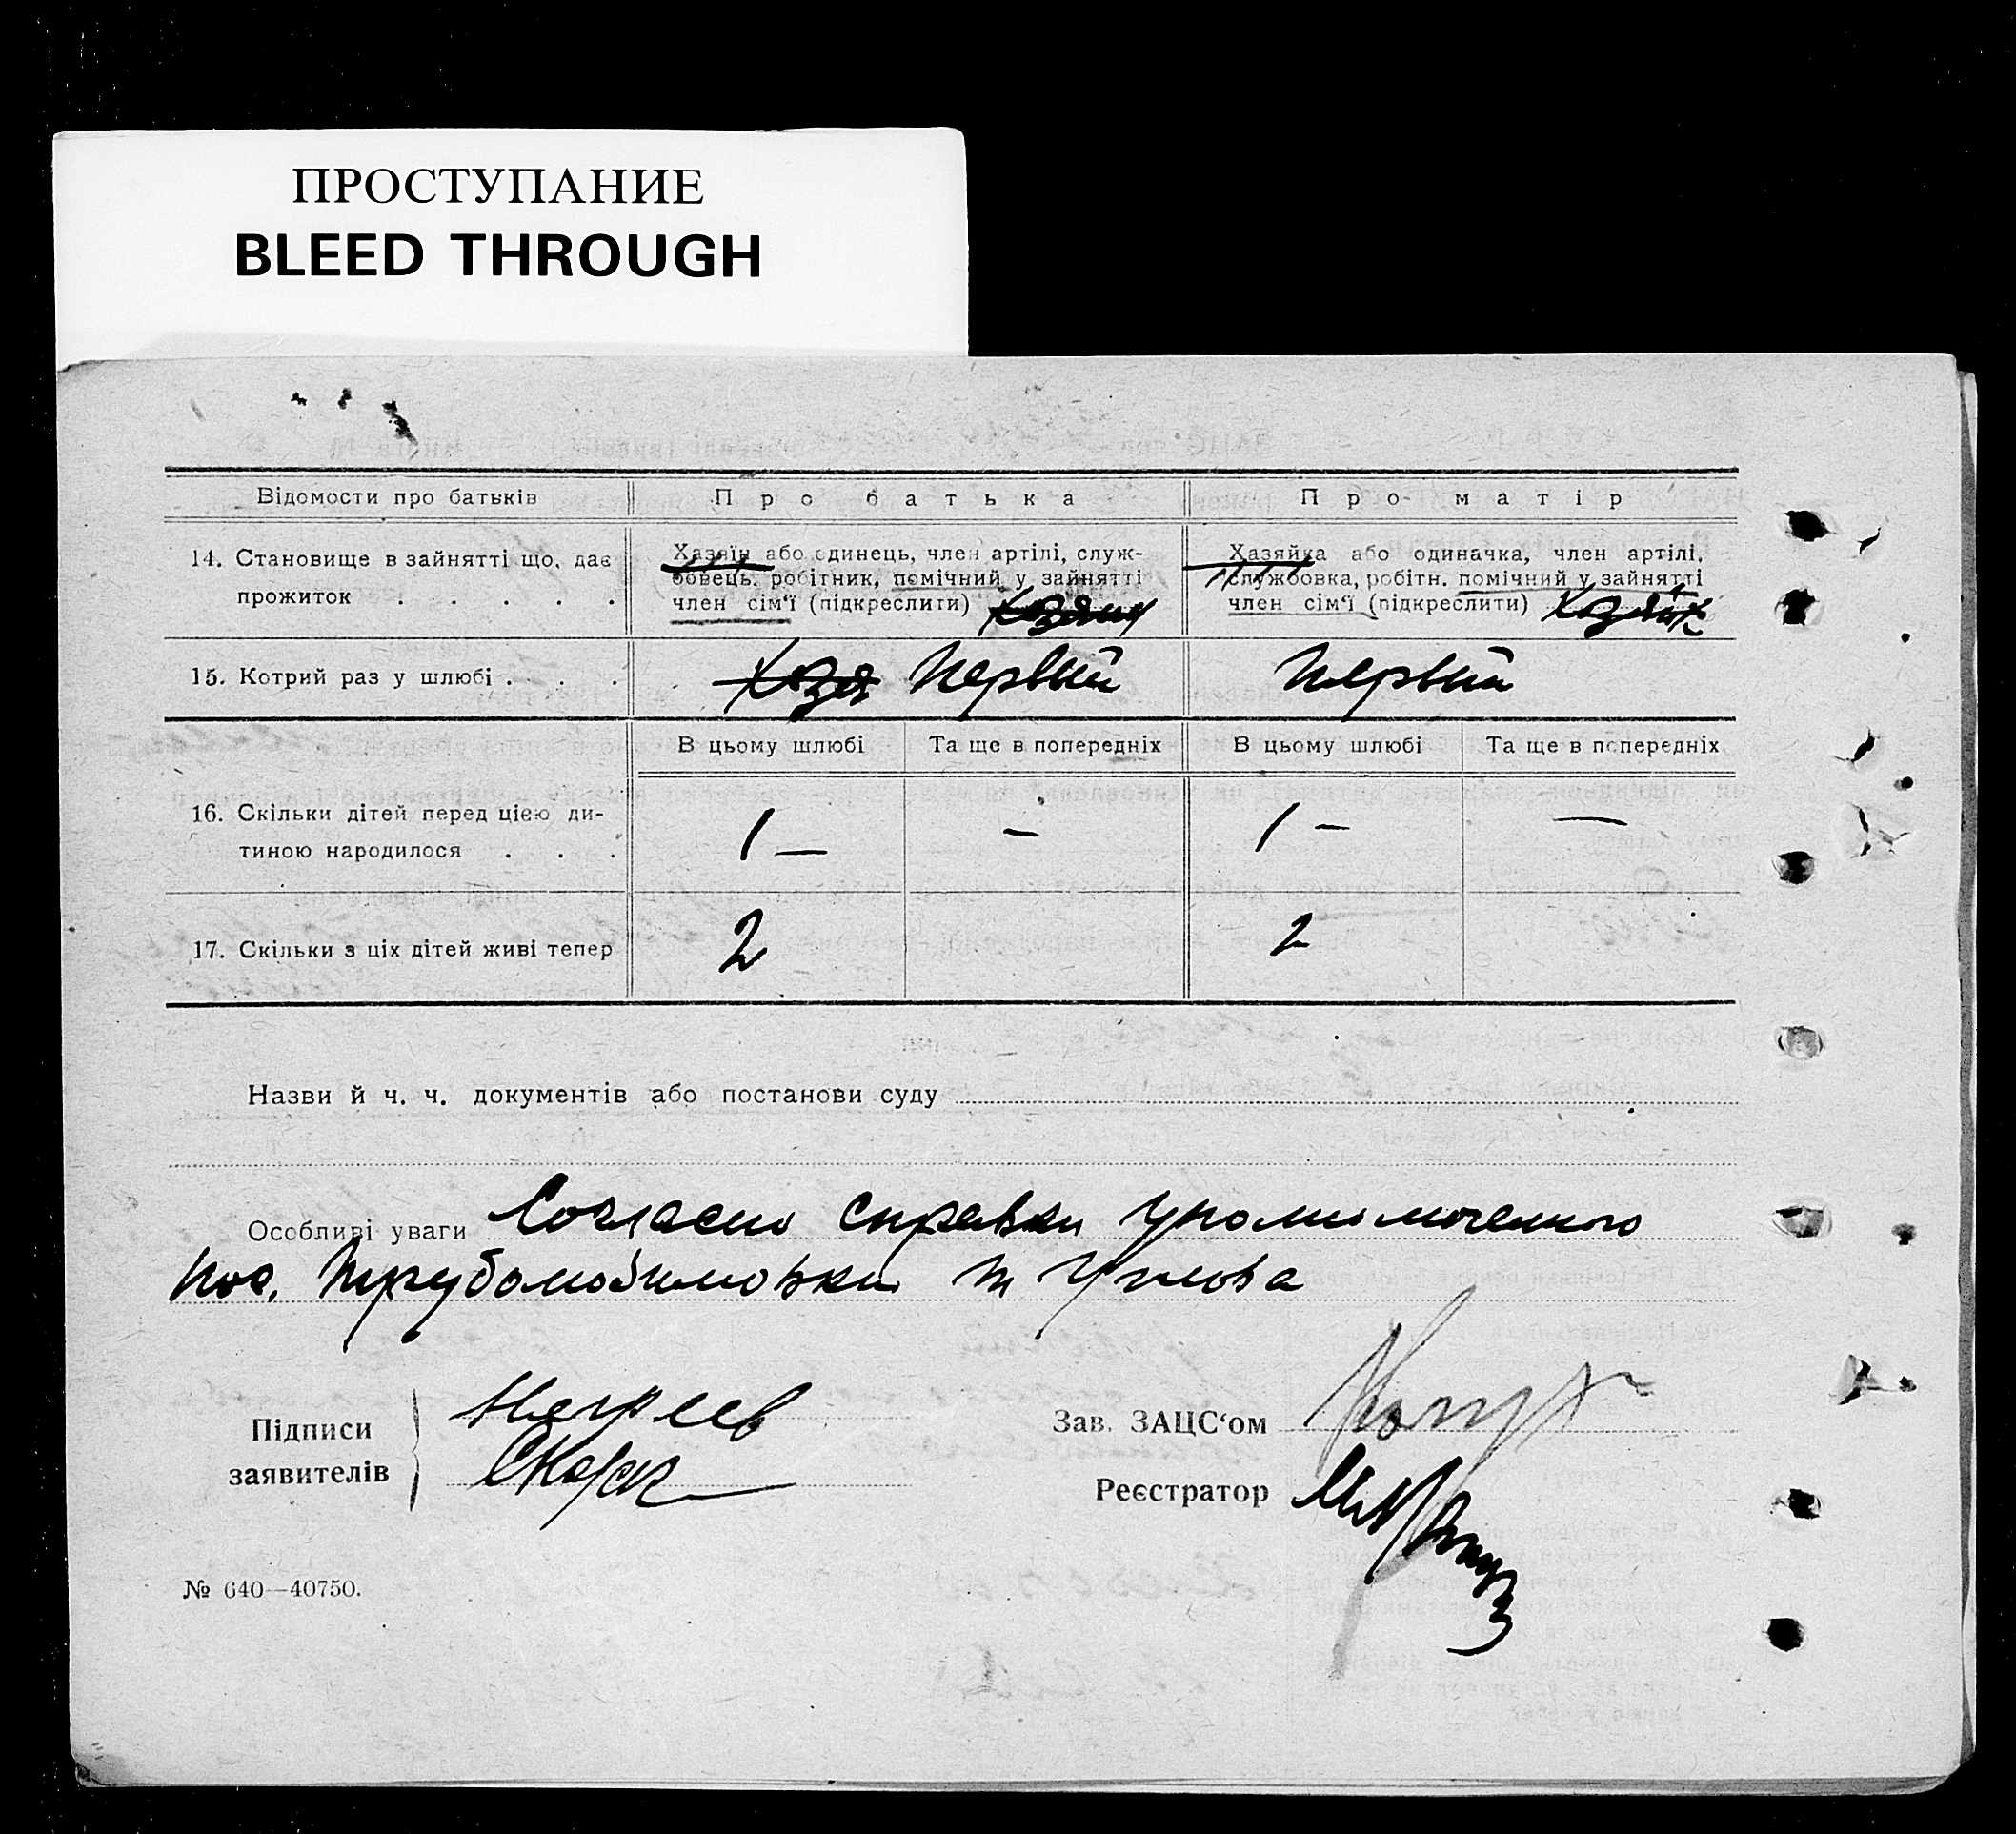 ПРОСТУПАНИЕ
BLEED THROUGH
Відомости про батьків
Про батька
Про матір
14. Становище в зайнятті що, дає
прожиток . . . . .
Хазяїн або одинець, член артілі, служ-
бовець, робітник, помічний у зайнятті
член сім'ї (підкреслити) Хозяин
Хазяйка або одиначка, член артілі,
службовка, робітн. помічний у зайнятті
член сім'ї (підкреслити)
15. Котрий раз у шлюбі . . .
Хозя Первый
Первый
В цьому шлюбі
Та ще в попередніх
В цьому шлюбі
Та ще в попередніх
16. Скільки дітей перед цією ди-
тиною народилося . . .
1 —
—
1 —
—
17. Скільки з ціх дітей живі тепер
2
2
Назви й ч. ч. документів або постанови суду
Особливі уваги Согласно справки уполномоченного
пос.
Підписи
заявителів
Зав. ЗАЦС'ом
Реєстратор
№ 640—40750.